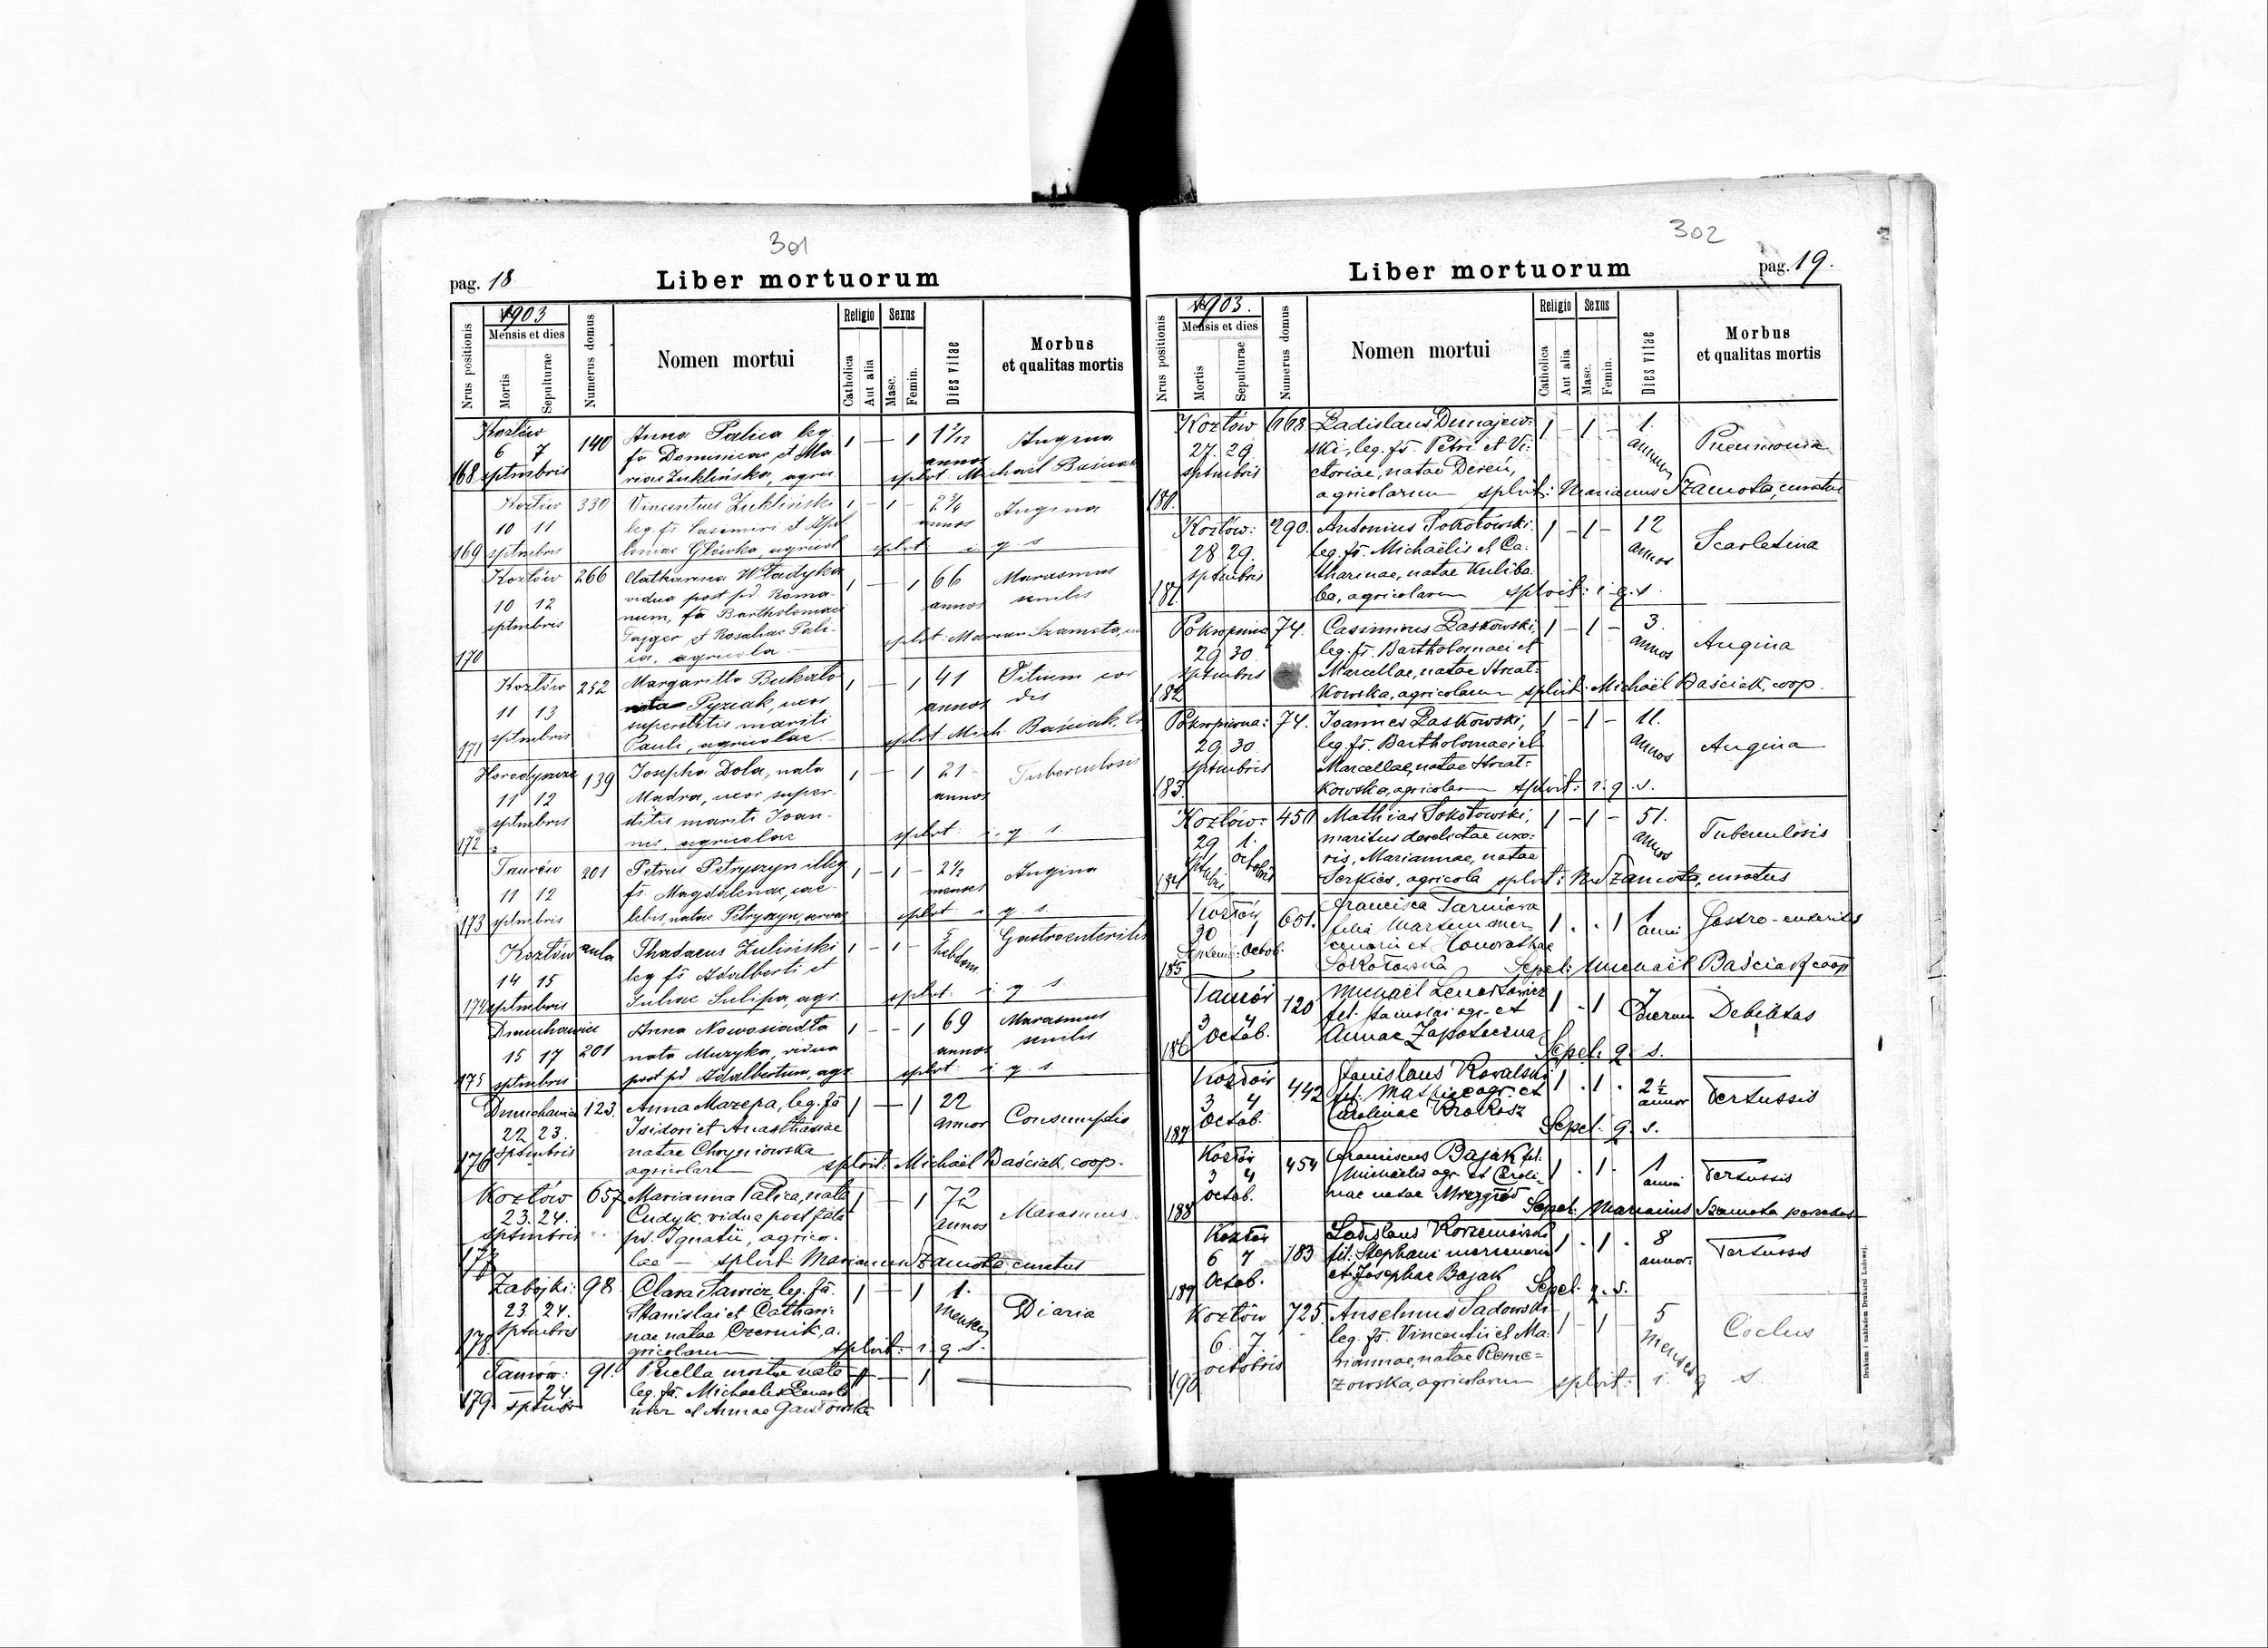 301
pag. 18
Liber mortuorum
Nrus positionis
1903
Mensis et dies
Mortis
Sepulturae
Numerus domus
Nomen mortui
Religio
Catholica
Aut alia
Sexus
Masc.
Femin.
Dies vitae
Morbus
et qualitas mortis
Kozłów 140 Anna Palica leg 1 — 1 Angina
6 7 fa Dominicae et Ma annos
168 sptmbris riae Zuklińska, agric splvt. Michael Baściak
Kozłów 330 Vincentius Zukliński 1 – 1 – 2 3/4 Angina
10 11 leg. fs. Casimiri et annos
169 sptmbris Główka, agricol splvt i q s
Kozłów 266 Catharina Władyka 1 — 1 66 Marasmus
10 12 vidua post pd. Roma- annos senilis
sptmbris num, fa Bartholomaei
Tajger et Rosaliae Pali- splvt. Marian Szamota,
170 ca, agricola
Kozłów 252 Margaritta Bukało 1 — 1 41 Vitium cor
11 13 Pyziak, uxor annos dis
sptmbris superstitis mariti
171 Pauli, agricolae splvt. Mich. Baściak,
Horodyszcze 139 Josepha Dola, nata 1 — 1 21 Tuberculosis
11 12 Madra, uxor super- annos
sptmbris stitis mariti Joan-
172 nis, agricolae splvt. i. q. s
Taurów 201 Petrus Petryszyn illeg 1 – 1 – 2 1/2 Angina
11 12 fs. Magdalenae, cae- menses
173 sptmbris libis, natae Petryszyn, splvt i q. s
Kozłów aula Thadaeus Zuliński 1 – 1 – 5 Gastroenteritis
14 15 leg fs Adalberti et hebdom.
174 sptmbris Juliae Sulipa, agr. splvt. i q s
Dmuchawiec Anna Nowosiadła 1 – – 1 69 Marasmus
15 17 201 nata Muzyka, vidua annos senilis
175 sptmbris post pd Adalbertum, agr. splvt. i q s
Dmuchawiec 123. Anna Mazepa, leg. fa 1 — 1 22 Consumptio
22 23. Isidori et Anasthasiae annos
sptmbris natae Chryniowska
176 agricolarum splvit: Michaël Baściak, coop.
Kozłów 657 Marianna Palica, nata 1 — 1 72 Marasmus
23. 24. Cudyk. vidua post fata annos
sptmbris pd. Ignatii, agrico-
177 lae – splvit Marianus Szamota, curatus
Zabojki: 98 Clara Sawicz, leg. fa. 1 — 1 1. Diaria
23 24. Stanislai et Cathari- menses
sptmbris nae, natae Czernik, a.
178 gricolarum splvit: i. q s.
Taurów: 91. Puella mortua nata — 1
– 24. leg. fa. Michaelis
179 sptmbr et Annae Gawłowska
302
Liber mortuorum
pag. 19.
Nrus positionis
1903.
Mensis et dies
Mortis
Sepulturae
Numerus domus
Nomen mortui
Religio
Catholica
Aut alia
Sexus
Masc.
Femin.
Dies vitae
Morbus
et qualitas mortis
Kozłów 668 Ladislaus Dunajew- 1 – 1 – 1. Pneumonia
27. 29. ski, leg. fs. Petri et Vi- annum
sptmbris ctoriae, natae Dereń,
180. agricolarum splvit: Marianus Szamota, curatus
Kozłów: 290. Antonius Sokołowski 1 – 1 – 12 Scarlatina
28 29. leg. fs. Michaëlis et Ca- annos
sptmbris tharinae, natae Kuliba-
181 ba, agricolarum splvit: i. q. s.
Pokropiwna 74. Casimirus Laskowski, 1 – 1 – 3. Angina
29 30 leg. fs. Bartholomaei et annos
sptmbris Marcellae, natae
182 kowska, agricolarum splvit: Michaël Baściak, coop.
Pokropiwna: 74. Joannes Laskowski, 1 – 1 – 11. Angina
29. 30. leg. fs. Bartholomaei et annos
sptmbris Marcellae, natae
183. kowska, agricolarum splvit: i. q. s.
Kozłów: 450 Mathias Sokołowski, 1 – 1 – 51. Tuberculosis
29 1. maritus derelictae uxo- annos
octobris ris, Mariannae, natae
184 Serkies, agricola splvit: M. Szamota, curatus
Kozłów 651. Francisca Tarniova 1 . . 1 1 Gastro-enteritis
30 1 filia Martini mer- anni
Septem. Octob. cenarii et Honorathae
185 Sokołowska Sepel: Michaël Baściak coop
Taurów 120 Michaël Lenartowicz 1 . 1 7 Debilitas
3 4 fil. Stanislai agr. et dierum
186 Octob. Annae Sepel: q. s.
Kozłów 442 Stanislaus Kowalski 1 . 1 . 2 1/2 Pertussis
3 4 fil. Mathiae agr. et annor
187 Octob. Carolinae Krokosz Sepel. q. s.
Kozłów 454 Franciscus Bajak fil. 1 . 1 . 1 Pertussis
3 4 Michaëlis agr. et Caroli- anni
188 Octob. nae natae Mrzygłód Sepel. Marianus Szamota
Kozłów 183 Ladislaus 1 . 1 . 8 Pertussis
6 7 fil. Stephani mercenarii annor.
189 Octob. et Josephae Bajak Sepel. q. s.
Kozłów 725. Anselmus Sadowski 1 – 1 – 5 Coclus
6. 7. leg. fs. Vincentii et Ma- menses
octobris riannae, natae Reme-
190 zowska, agricolarum splvit: i. q s.
Drukiem i nakładem Drukarni Ludowej.